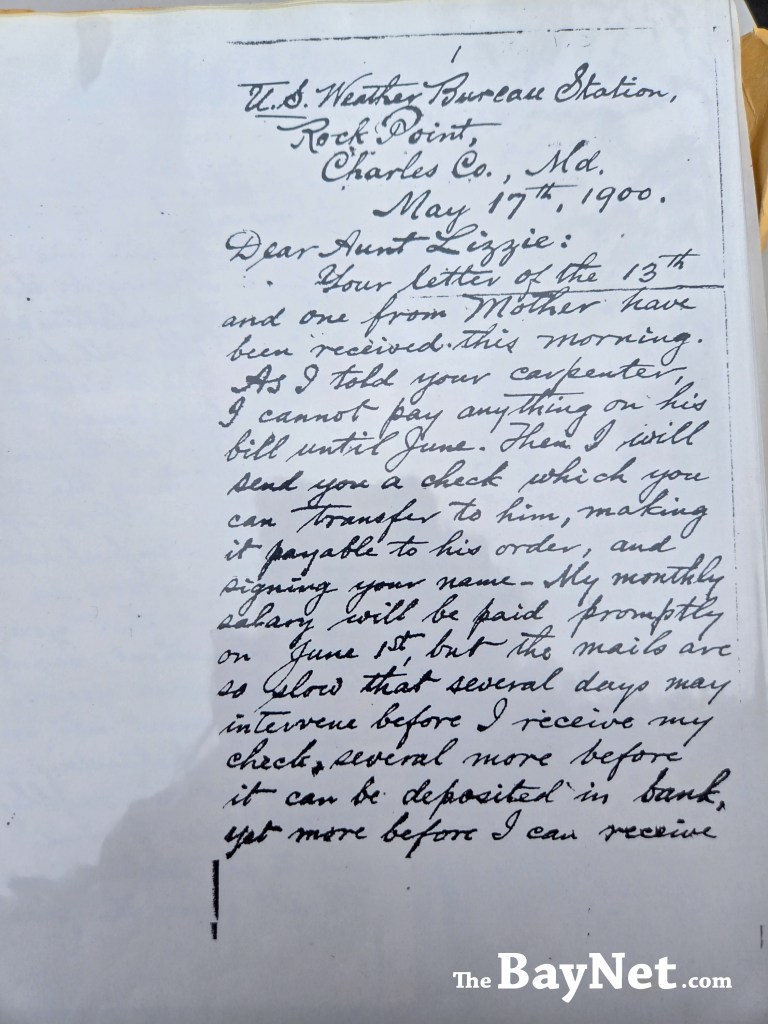 U.S. Weather Bureau Station,
Rock Point,
Charles Co., Md.
May 17th, 1900.
Dear Aunt Lizzie:
Your letter of the 13th
and one from Mother have
been received this morning.
As I told your carpenter,
I cannot pay anything on his
bill until June. Then I will
send you a check which you
can transfer to him, making
it payable to his order, and
signing your name – My monthly
salary will be paid promptly
on June 1st, but the mails are
so slow that several days may
intervene before I receive my
check, several more before
it can be deposited in bank,
yet more before I can receive
The BayNet.com